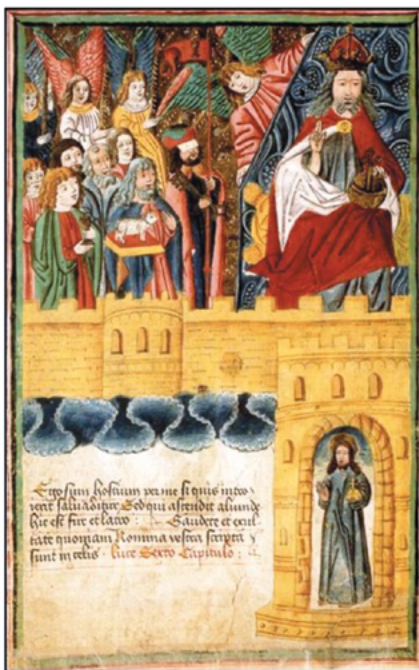 Ego sum hostium per me si quis intro
ierit salvabitur Sed qui ascendit aliunde
hic est fur et latro : Gaudete et exul
tate quoniam Nomina vestra scripta
sunt in celis luce Sexto Capitulo :